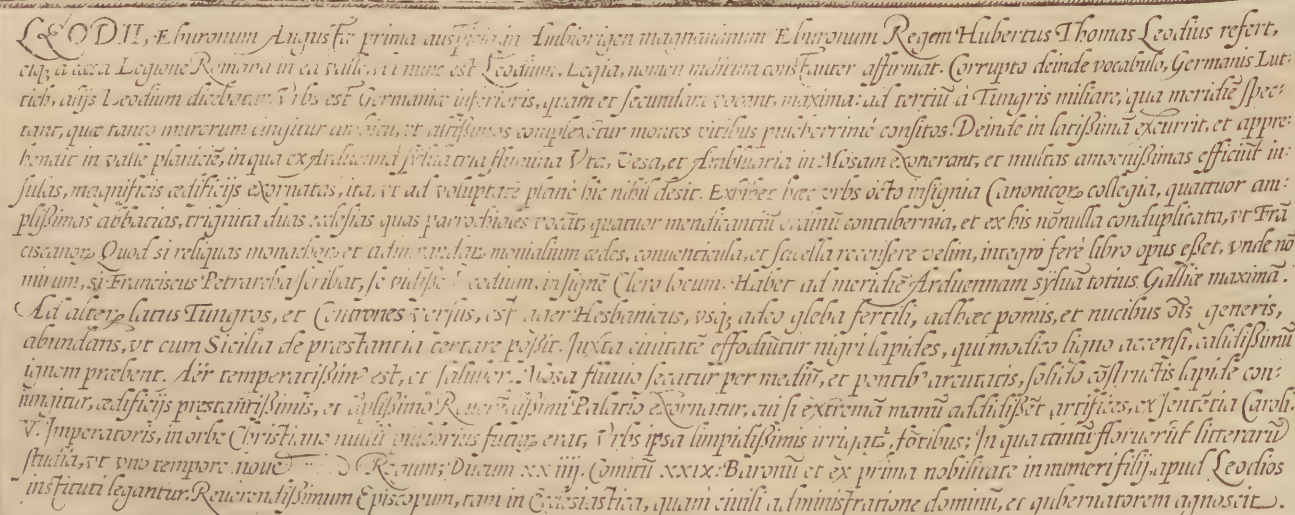 LEODII, Eburonum Augustæ prima auspicia in Ambiorigen magnanimum Eburonum Regem Hubertus Thomas Leodius refert,
eiq, a cæsa Legione Romana in ea valle, vbi nunc est Leodium, Legia, nomen inditum constanter affirmat. Corrupto deinde vocabulo, Germanis Lut:
tich, alijs Leodium dicebatur. Vrbs est Germaniæ inferioris, quam et secundam vocant, maxima: ad tertiũ à Tungris miliare, qua meridiẽ spec:
tant, quæ tanto murorum cingitur ambitu, vt altißimos complexetur montes vitibus pulcherrimè consitos. Deinde in latißimã excurrit, et appre:
hendit in valle planiciẽ, in qua ex Arduenna sylua tria flumina Vta, Vesa, et Ambluaria in Mosam exonerant, et multas amœnißimas efficiũt in:
sulas, magnificis ædificijs exornatas, ita, vt ad voluptatẽ planè hic nihil desit. Exhibet hæc vrbs octo insignia Canonicoꝝ collegia, quattuor am:
plißimas abbatias, triginta duas ecclesias quas parrochiales vocãt, quatuor mendicantiũ ordinũ contubernia, et ex his nõnulla conduplicata, vt Frã
ciscanoꝝ. Quod si reliquas monachoꝝ et admirandas monialium ædes, conuenticula, et sacella recensere velim, integro ferè libro opus eßet, vnde nõ
mirum, si Franciscus Petrarcha scribat, se vidiße Leodium, insignẽ Clero locum. Habet ad meridiẽ Arduennam syluã totius Galliæ maximã.
Ad alterꝝ latus Tungros, et Centrones versus, est ager Hesbanicus, vsq, adeo gleba fertili, adhæc pomis, et nucibus oĩs generis,
abundans, vt cum Sicilia de præstantia certare poßit. Juxta ciuitatẽ effodiũtur nigri lapides, qui modico ligno accensi, calidißimũ
ignem præbent. Aër temperatißimꝰ est, et saluber. Mosa fluuio secatur per mediũ, et pontibꝰ arcuatis, solido cõstructis lapide con:
iungitur, ædificijs prestantißimis, et ãplißimo Reuerẽdißimi Palatio exornatur, cui si extremã manũ addidißẽt artifices, ex sentẽtia Caroli.
V. Imperatoris, in orbe Christiano nulli futuꝝ erat, Vrbs ipsa limpidißimis irrigatꝰ fõtibus; In qua tantũ floruerũt litterarũ
studia, vt vno tempore noue Regum; Ducum XX iiij. Comitũ XXIX. Baronũ et ex prima nobilitate innumeri filij, apud Leodios
instituti legantur. Reuerendißimum Episcopum, tam in Ecclesiastica, quam ciuili administratione dominũ, et gubernatorem agnoscit.